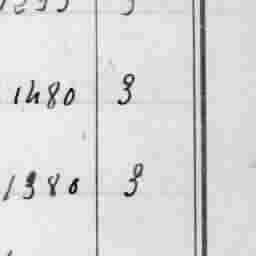 1480 3
1380 3